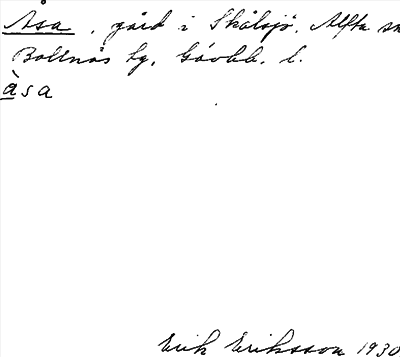 Åsa, gård i Skålsjö, Alfta sn
Bollnäs tg, Gävleb. l.
àsa
Erik Eriksson 1930